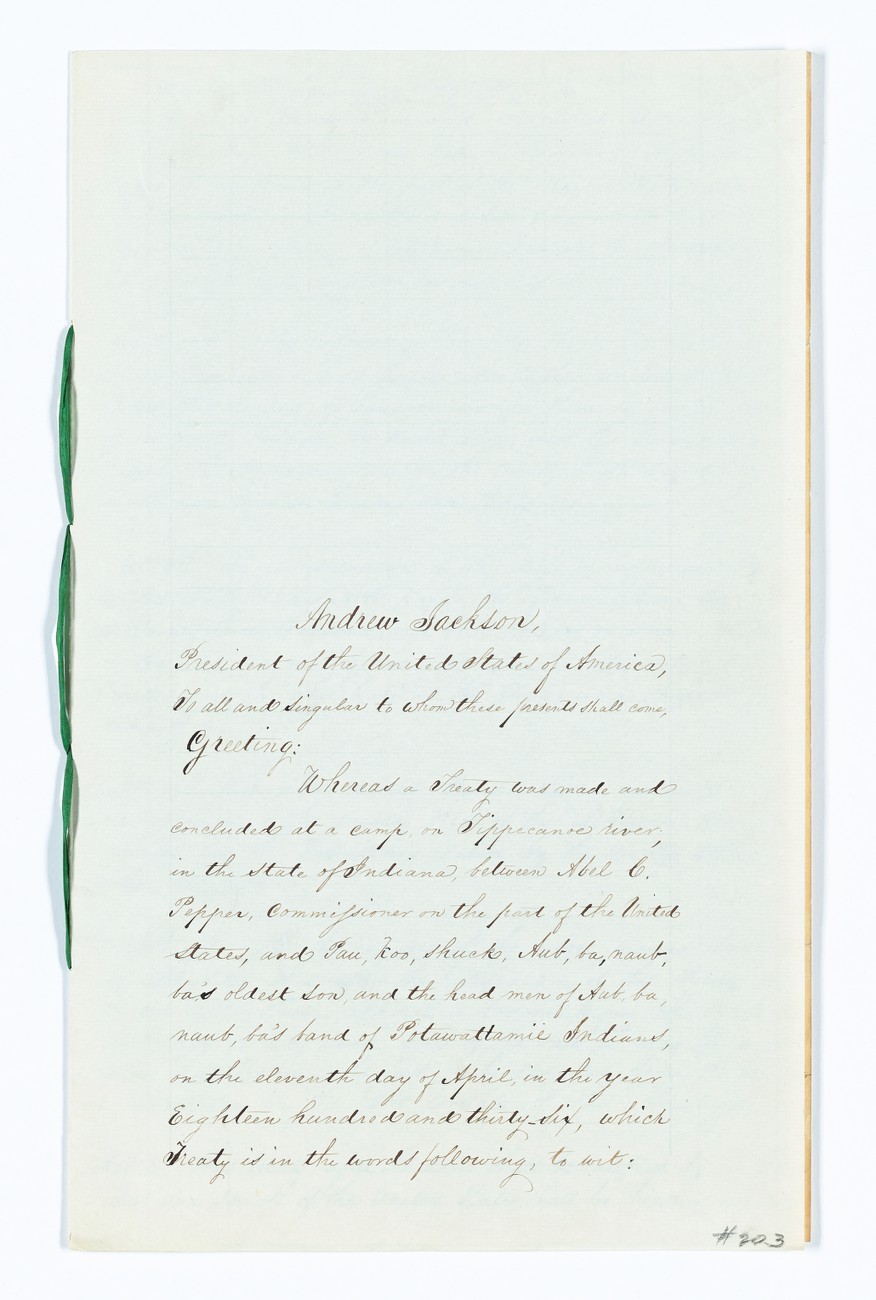 Andrew Jackson,
President of the United States of America,
To all and singular to whom these presents shall come,
Greeting:
Whereas a Treaty was made and
concluded at a camp, on Tippecanoe river,
in the state of Indiana, between Abel C.
Pepper, Commissioner on the part of the United
States, and Pau, koo, shuck, Aub, ba, naub,
ba's oldest son, and the head men of Aub, ba,
naub, ba's band of Potawattamie Indians,
on the eleventh day of April, in the year
Eighteen hundred and thirty-six, which
Treaty is in the words following, to wit:
#203